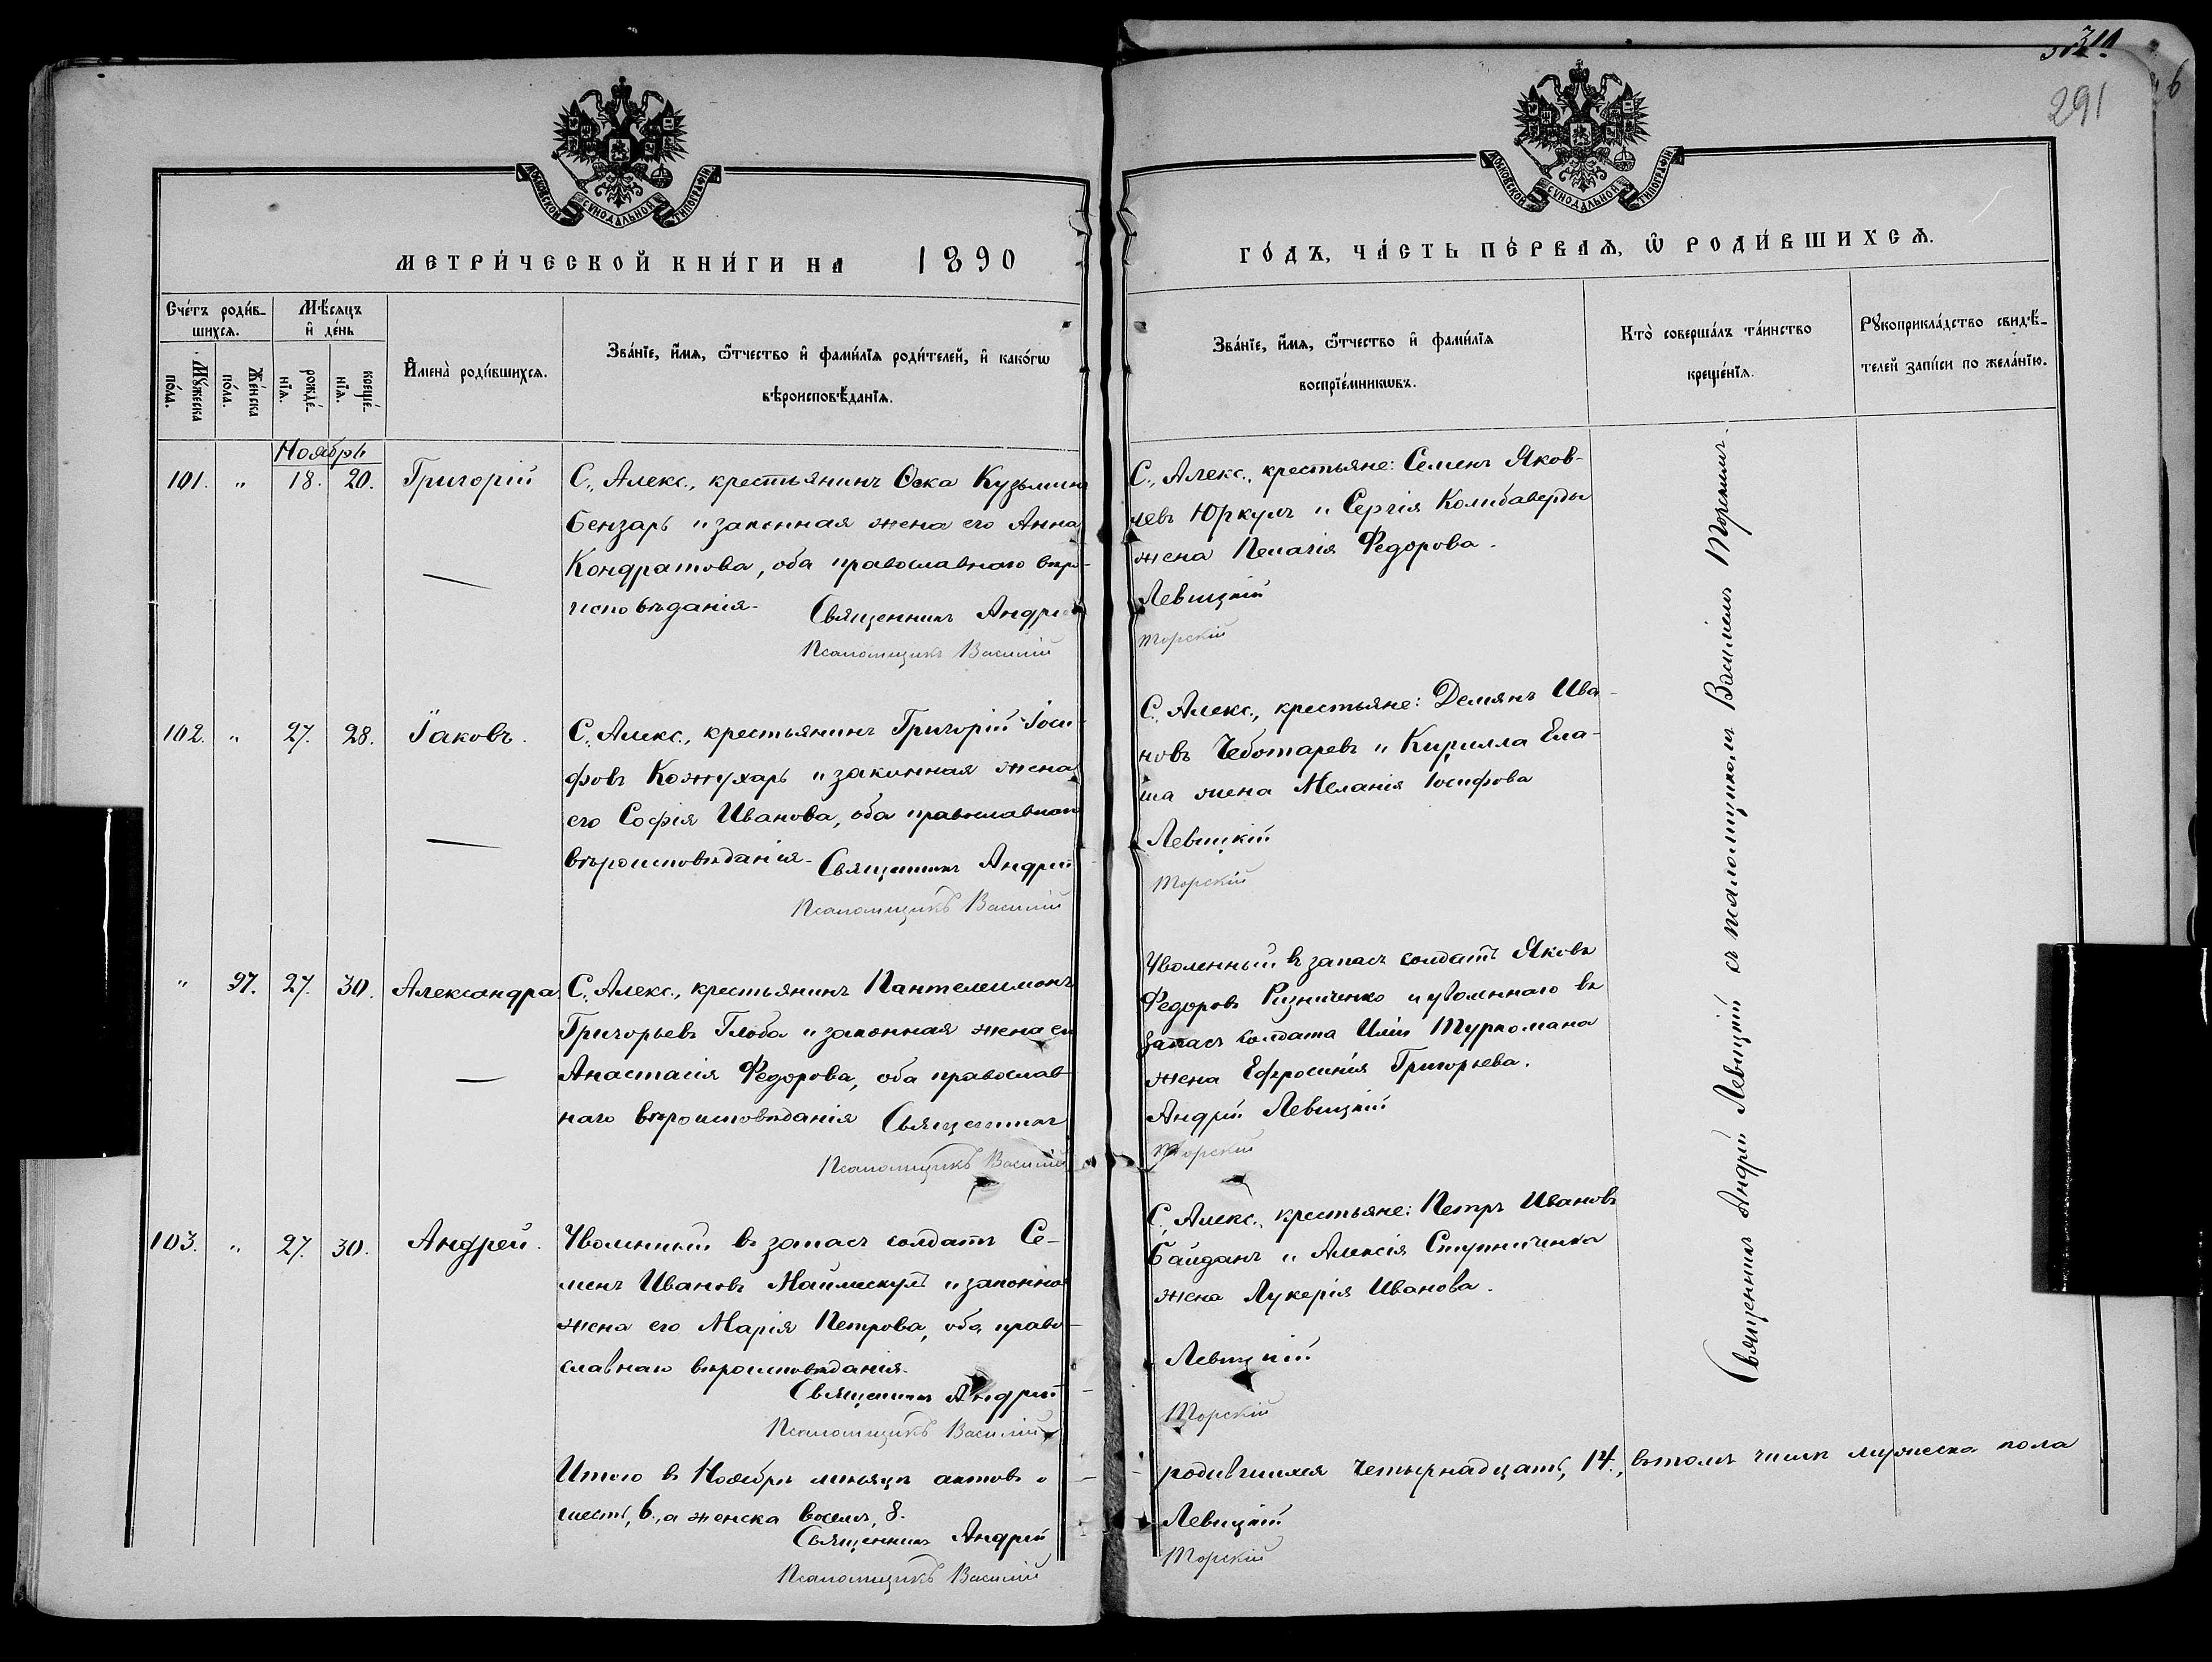 310.
291
6
МОСКОВСКОЙ СѴНОДАЛЬНОЙ ТИПОГРАФІИ
МОСКОВСКОЙ СѴНОДАЛЬНОЙ ТИПОГРАФІИ
МЕТРИ́ЧЕСКОЙ КНИ́ГИ НА 1890
ГО́ДЪ, ЧА́СТЬ ПЕ́РВАѦ, Ѡ҆ РОДИ́ВШИХСѦ.
Сче́тъ роди́в-
шихсѧ.
Мѣ́сѧцъ
и҆ де́нь
Мꙋ́жеска
по́ла.
Же́нска
по́ла.
рожде́-
нїѧ.
креще́-
нїѧ.
И҆мена̀ роди́вшихсѧ.
Зва́нїе, и҆́мѧ, ѻ҆́тчество и҆ фами́лїѧ роди́телей, и҆ како́гѡ
вѣроисповѣ́данїѧ.
Зва́нїе, и҆́мѧ, ѻ҆́тчество и҆ фами́лїѧ
воспрїе́мникѡвъ.
Кто̀ соверша́лъ та́инство
креще́нїѧ.
Рꙋкоприкла́дство свидѣ́-
телей за́писи по жела́нїю.
Ноябрь
101. " 18. 20. Григорій
С., Алекс., крестьянинъ Ѳока Кузьминъ
Бензарь и законная жена его Анна
Кондратова, оба православнаго вѣро-
исповѣданія. Священникъ Андрей
Псаломщикъ Василій
С., Алекс., крестьяне: Семенъ Яков-
левъ Юркулъ и Сергія
жена Пелагія Федорова.
Левицкій
Торскій
102. " 27. 28. Іаковъ.
С., Алекс., крестьянинъ Григорій Іоси-
фовъ Кожухарь и законная жена
его Софія Иванова, оба православнаго
вѣроисповѣданія. Священникъ Андрей
Псаломщикъ Василій
С., Алекс., крестьяне: Демянъ Ива-
новъ Чеботаревъ и Кирилла Ела-
жена Меланія Іосифова
Левицкій
Торскій
" 97. 27. 30. Александра
С., Алекс., крестьянинъ Пантелеимонъ
Григорьевъ Глоба и законная жена его
Анастасія Федорова, оба православ-
наго вѣроисповѣданія Священникъ
Псаломщикъ Василій
Уволенный въ запасъ солдатъ Яковъ
Федоровъ Ризниченко и уволеннаго въ
запасъ солдата Иліи Туркомана
жена Ефросинія Григорьева.
Андрей Левицкій
Торскій
103. " 27. 30. Андрей.
Уволенный въ запасъ солдатъ Се-
менъ Ивановъ Наймескулъ и законная
жена его Марія Петрова, оба право-
славнаго вѣроисповѣданія.
Священникъ Андрей
Псаломщикъ Василій
С., Алекс., крестьяне: Петръ Ивановъ
Байданъ и Алексія Ступниченка
жена Лукерія Иванова.
Левицкій
Торскій
Священникъ Андрей Левицкій съ псаломщикомъ Василіемъ Торскимъ.
Итого въ Ноябрѣ мѣсяцѣ актовъ о
родившихся четырнадцать, 14., въ томъ числѣ мужеска пола
шесть, 6., а женска восемь, 8.
Священникъ Андрей
Левицкій
Псаломщикъ Василій
Торскій